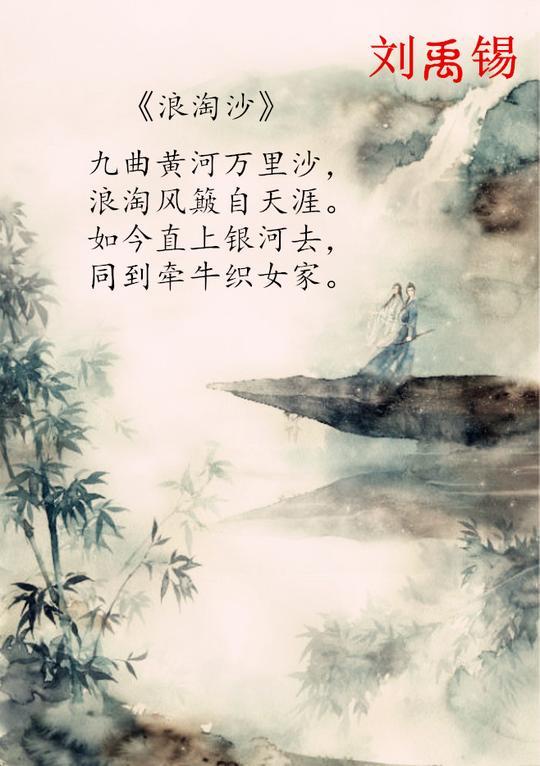 刘禹锡
《浪淘沙》
九曲黄河万里沙，
浪淘风簸自天涯。
如今直上银河去，
同到牵牛织女家。